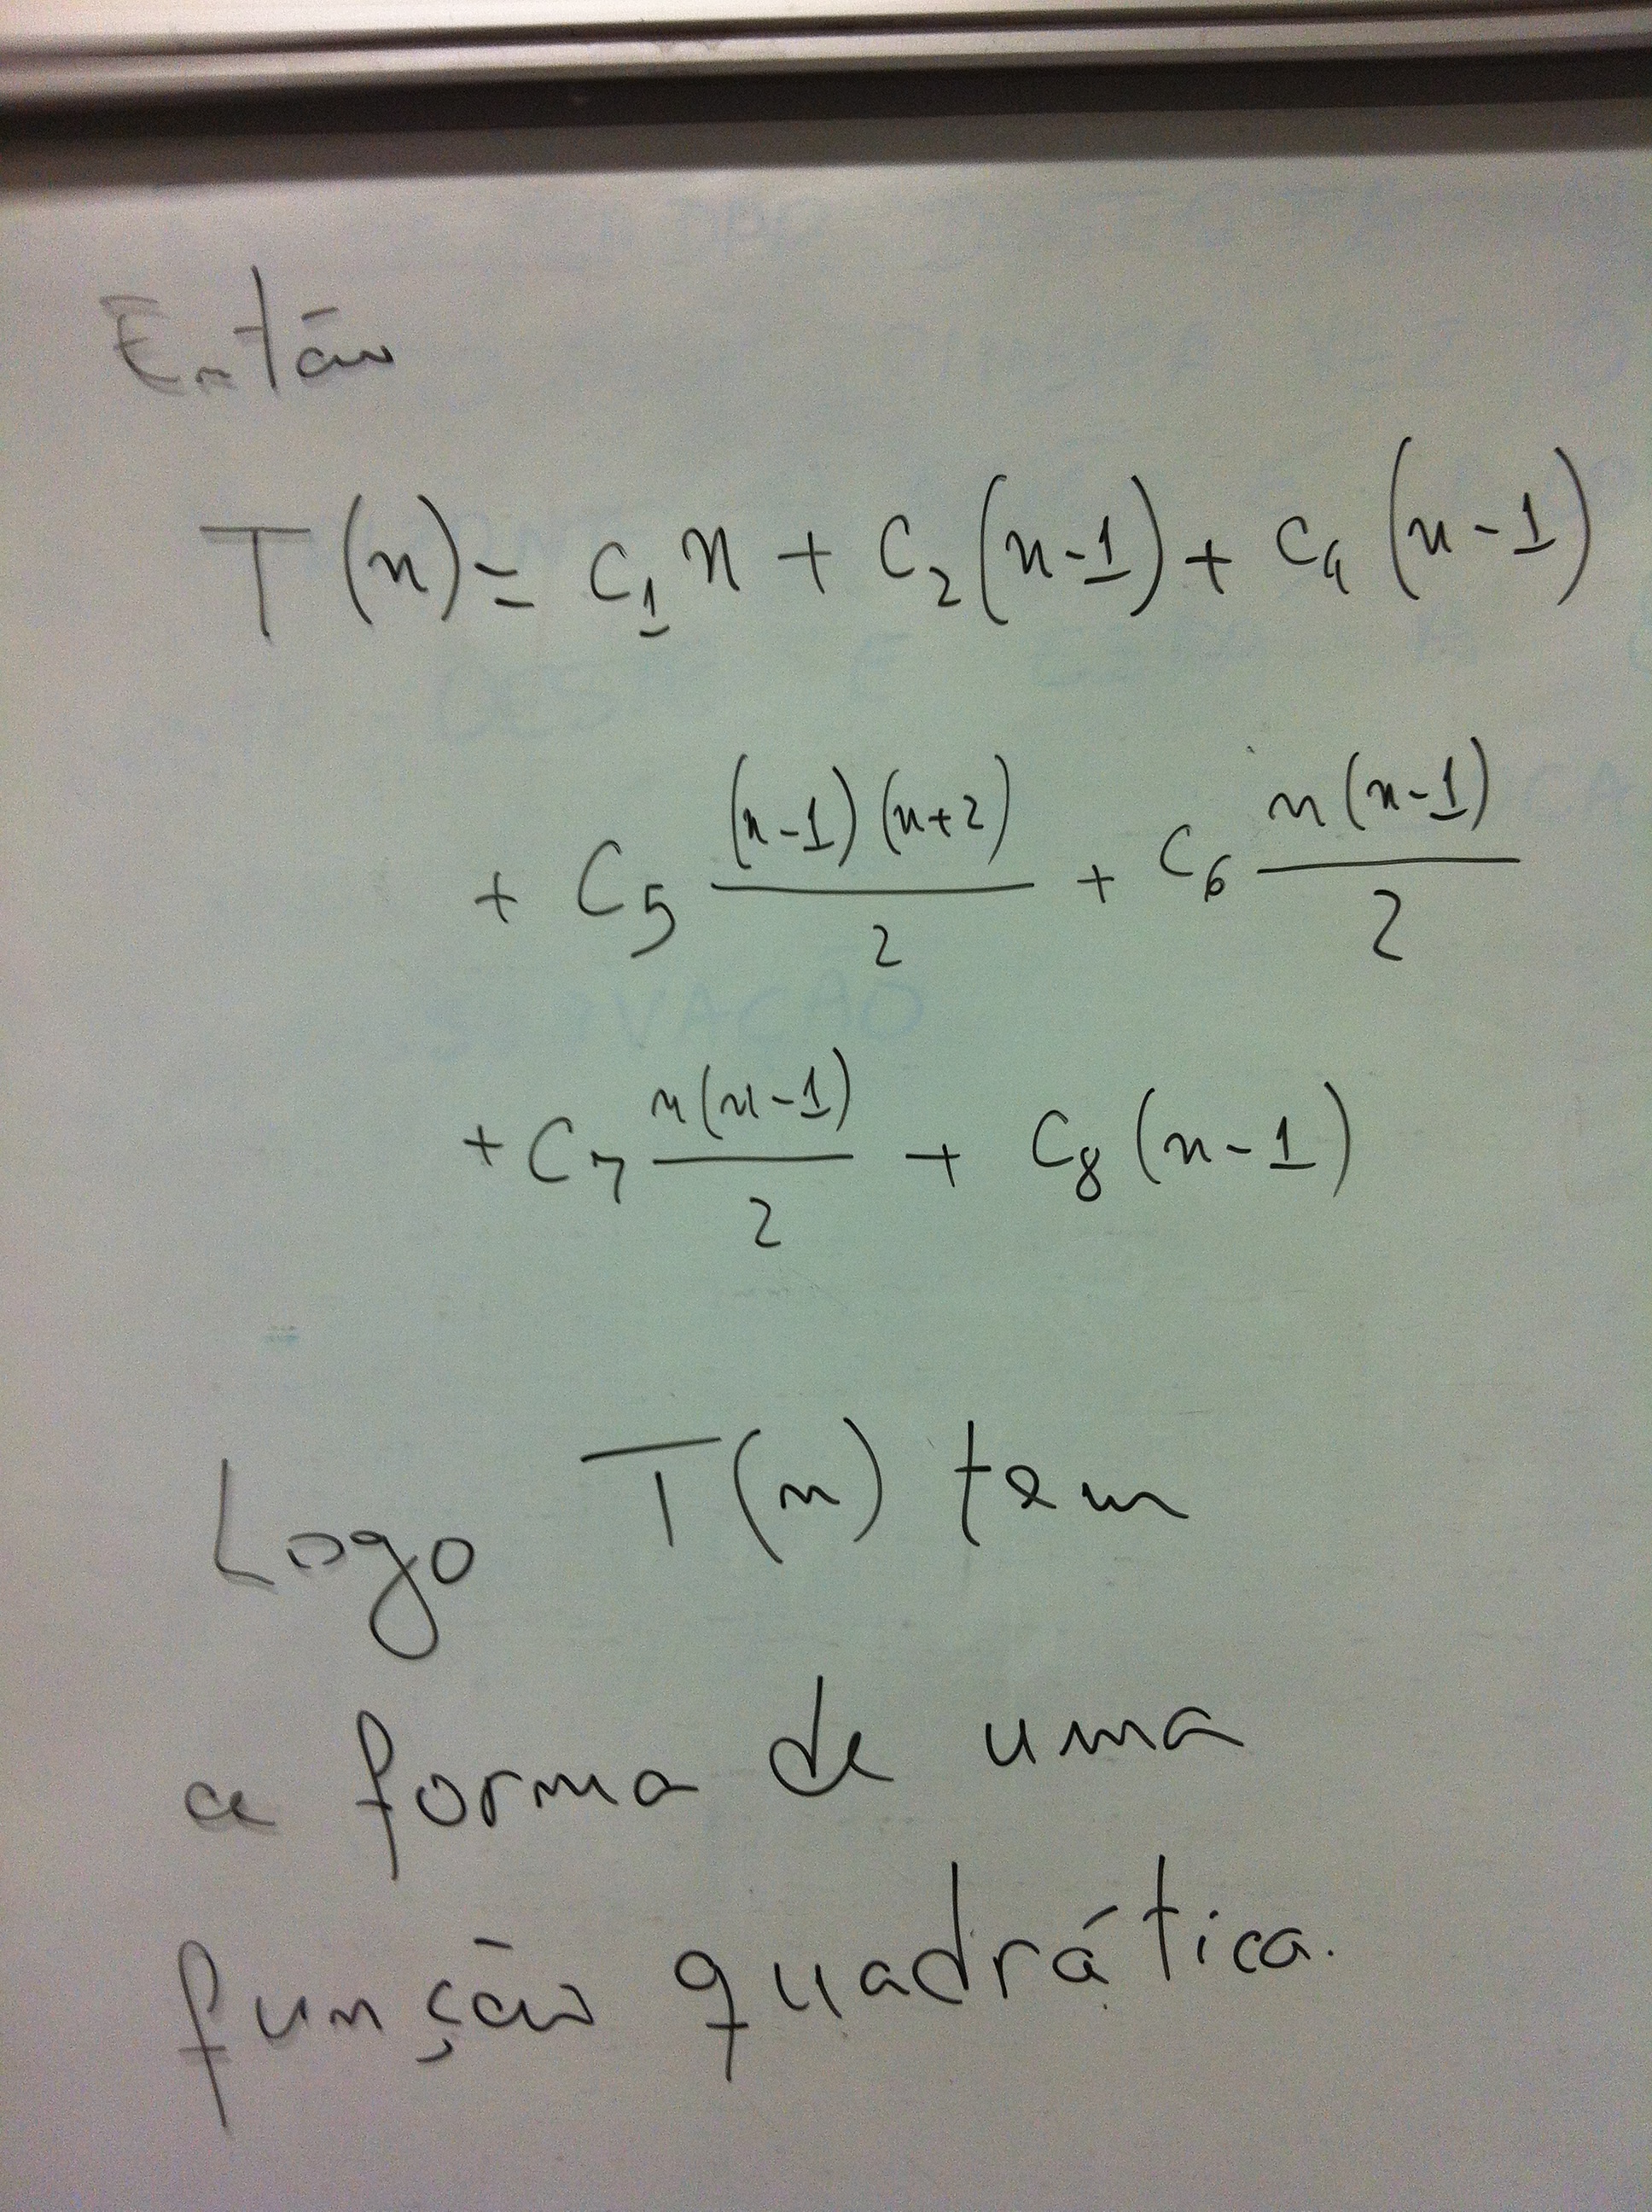 Então
T(n) = c₁n + c₂(n-1) + c₄(n-1)
+ c₅ (n-1)(n+2)/2 + c₆ n(n-1)/2
+ c₇ n(n-1)/2 + c₈(n-1)
Logo T(n) tem
a forma de uma
função quadrática.